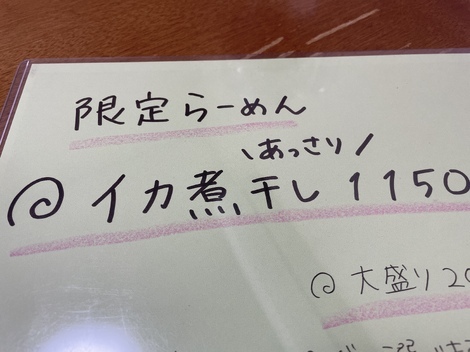 限定らーめん
\あっさり/
イカ煮干し 1150
大盛り 20